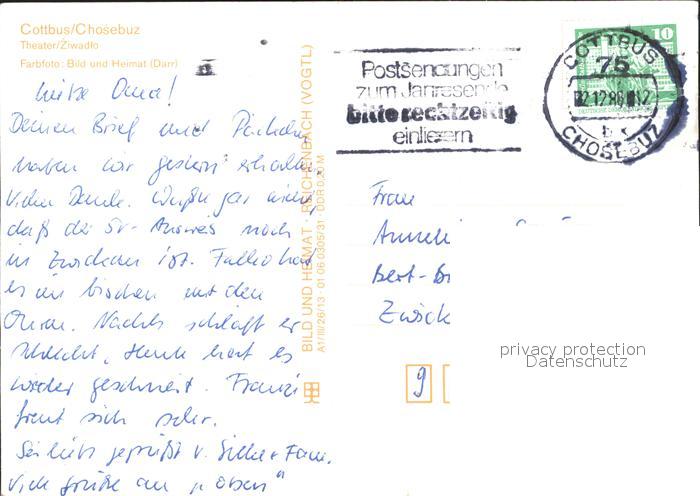 Cottbus/Chosebuz
Theater/Źiwadło
Farbfoto: Bild und Heimat (Darr)
Liebe Oma!
Deinen Brief und Päckchen
haben wir gestern erhalten.
Vielen Dank. Wußte gar nicht,
daß der SV-Ausweis noch
in Zwickau ist. Falko hat
es ein bischen mit den
Ohren. Nachts schläft er
schlecht. Heute hat es
wieder geschneit. Franzi
freut sich sehr.
Sei lieb gegrüßt v. Silke + Fam.
Viele Grüße an "oben"
BILD UND HEIMAT REICHENBACH (VOGTL)
A1/III/26/13 01 06 0305/31 DDR 0,20 M
Postsendungen
zum Jahresende
bitte rechtzeitig
einliefern
10
COTTBUS
75
CHOSEBUZ
Frau
Zwick
9
privacy protection
Datenschutz